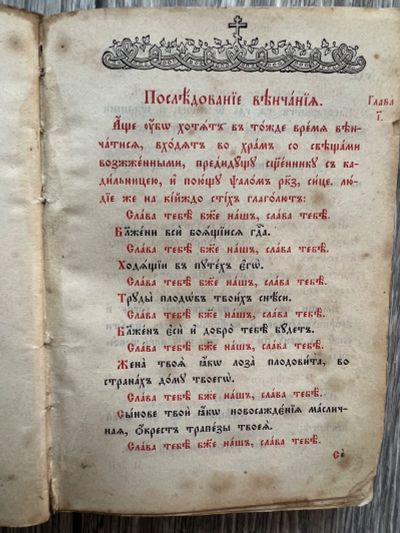 Послѣ́дованїе вѣнча́нїѧ.
Глава
І҃.
А҆́ще ᲂу҆̀бѡ хотѧ́тъ въ то́жде вре́мѧ вѣн-
ча́тисѧ, вхо́дѧтъ во хра́мъ со свѣща́ми
возжже́нными, предъидꙋ́щꙋ сщ҃е́нникꙋ съ ка-
ди́льницею, и҆ пою́щꙋ ѱало́мъ рк҃з, си́це. лю́-
дїе же на кі́йждо сті́хъ глаго́лютъ:
Сла́ва тебѣ̀ бж҃е на́шъ, сла́ва тебѣ̀.
Бл҃же́ни всѝ боѧ́щїисѧ гд҇а.
Сла́ва тебѣ̀ бж҃е на́шъ, сла́ва тебѣ̀.
Ходѧ́щїи въ пꙋте́хъ є҆гѡ̀.
Сла́ва тебѣ̀ бж҃е на́шъ, сла́ва тебѣ̀.
Трꙋды̀ плодѡ́въ твои́хъ снѣ́си.
Сла́ва тебѣ̀ бж҃е на́шъ, сла́ва тебѣ̀.
Бл҃же́нъ є҆сѝ и҆ добро̀ тебѣ̀ бꙋ́детъ.
Сла́ва тебѣ̀ бж҃е на́шъ, сла́ва тебѣ̀.
Жена̀ твоѧ̀ ꙗ҆́кѡ лоза̀ плодови́та, во
страна́хъ до́мꙋ твоегѡ̀.
Сла́ва тебѣ̀ бж҃е на́шъ, сла́ва тебѣ̀.
Сы́нове твоѝ ꙗ҆́кѡ новосажде́нїѧ ма́сличнаѧ, ѻ҆́крестъ трапе́зы твоеѧ̀.
Сла́ва тебѣ̀ бж҃е на́шъ, сла́ва тебѣ̀.
Сѐ